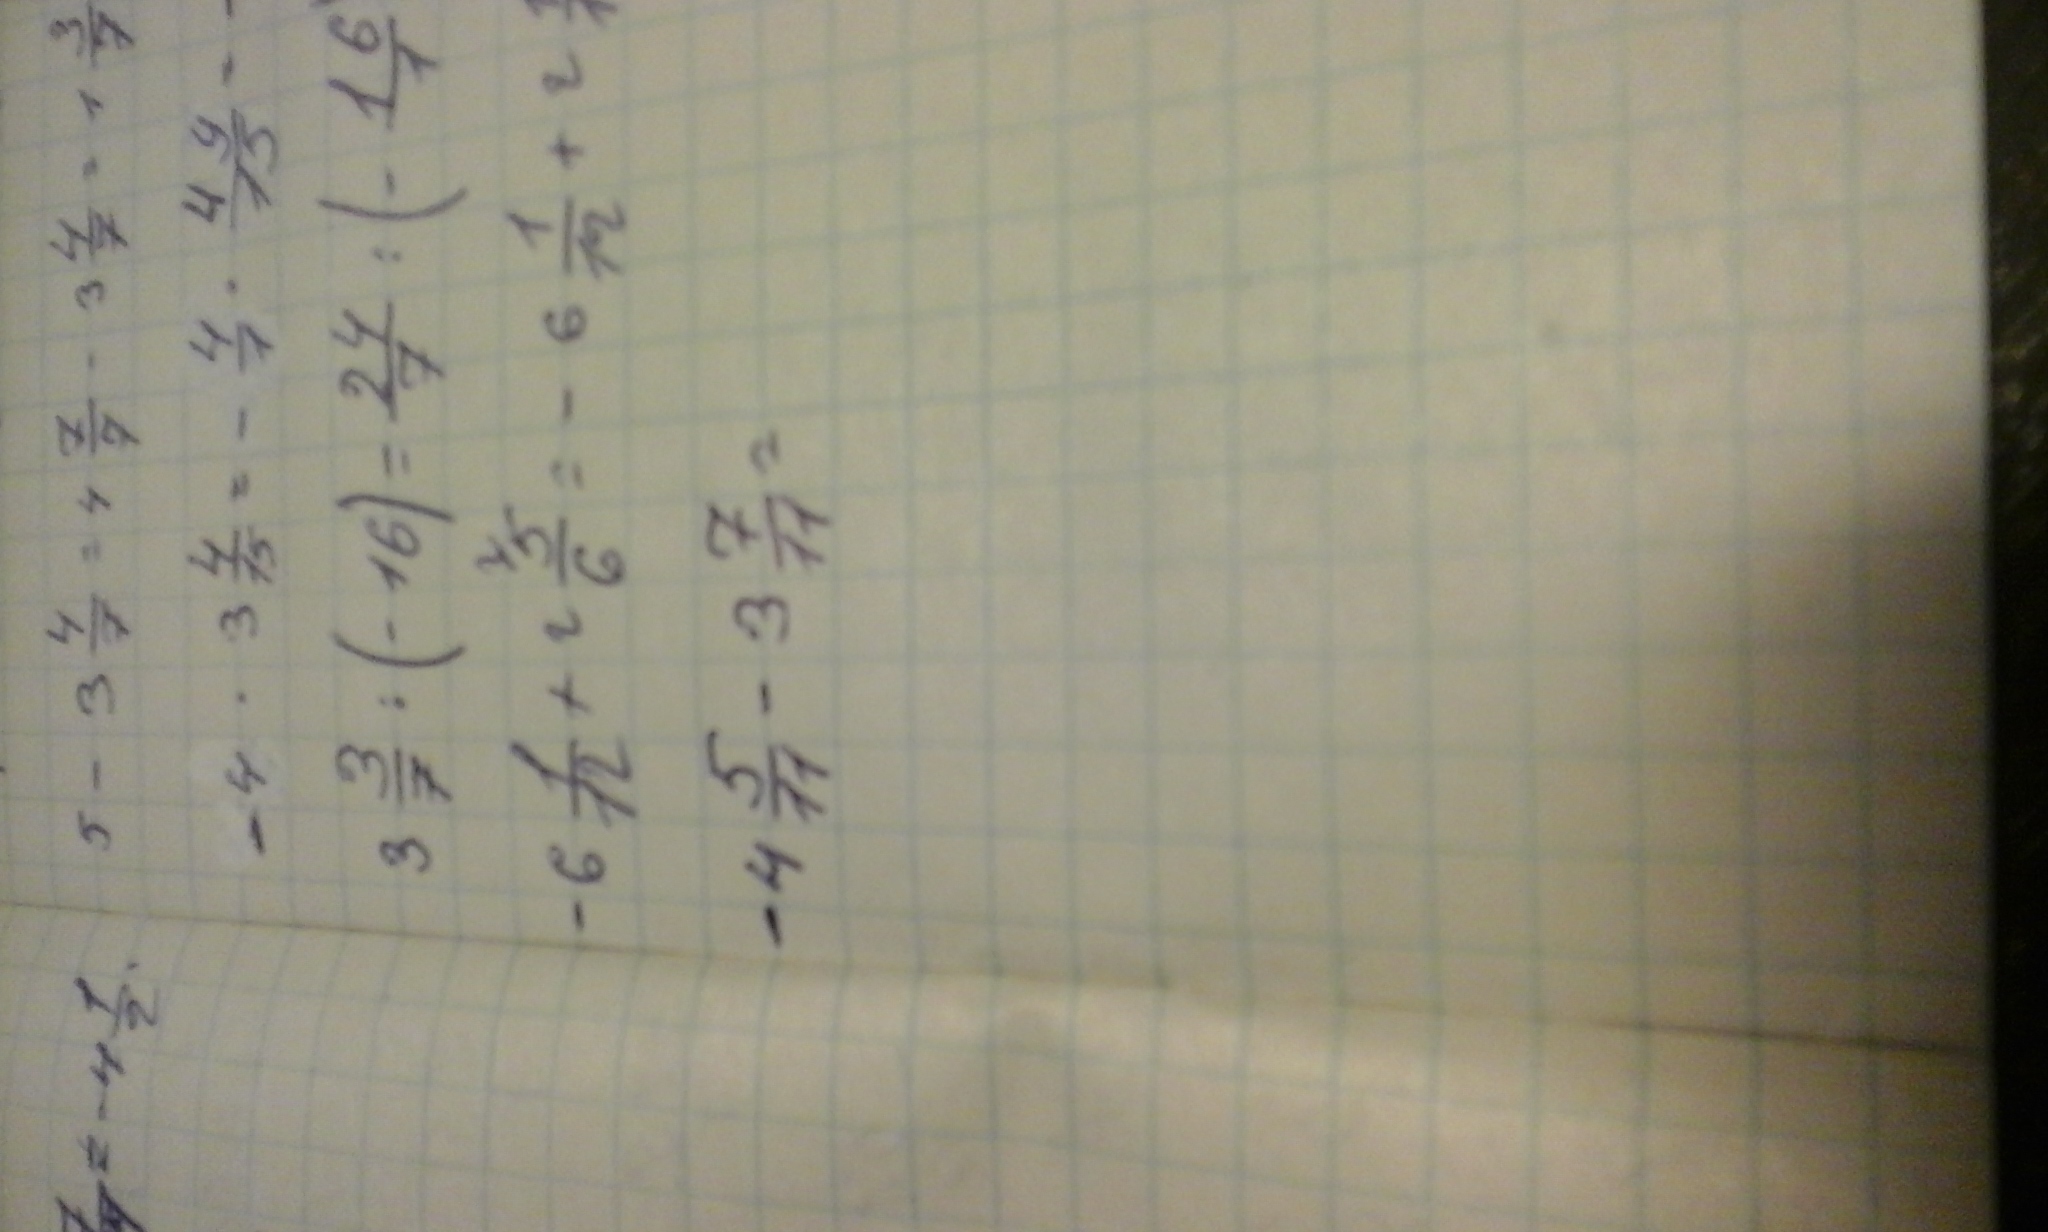 5 - 3 4/7 = 4 7/7 - 3 4/7 = 1 3/7
-4 · 3 4/15 = - 4/1 · 49/15 = -
3 3/7 : (-16) = 24/7 : (- 16/1
-6 1/12 + 2 5/6 = - 6 1/12 + 2
-4 5/11 - 3 7/11 =
= -4 1/2.